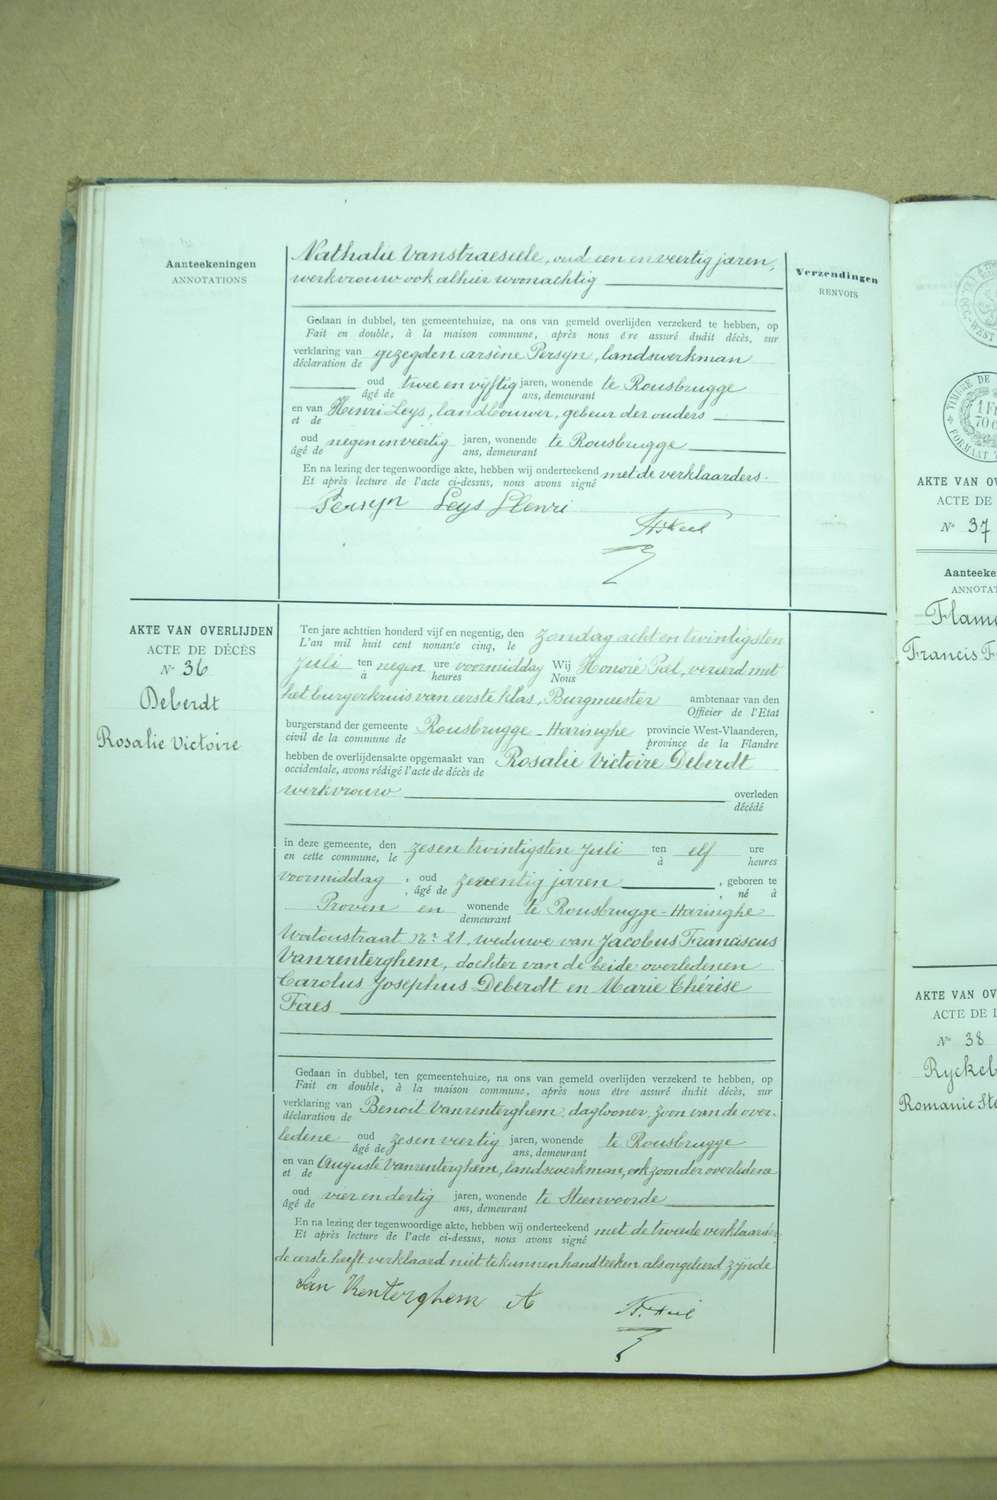 Aanteekeningen
ANNOTATIONS
Nathalie Vanstraeseele, oud een en veertig jaren,
werkvrouw ook alhier woonachtig
Verzendingen
RENVOIS
Gedaan in dubbel, ten gemeentehuize, na ons van gemeld overlijden verzekerd te hebben, op
Fait en double, à la maison commune, après nous être assuré dudit décès, sur
verklaring van gezegden arsène Persyn, landswerkman
déclaration de
oud twee en vijftig jaren, wonende te Rousbrugge
âgé de ans, demeurant
en van Henri Leys, landbouwer, gebeur der ouders
et de
oud negen en veertig jaren, wonende te Rousbrugge
âgé de ans, demeurant
En na lezing der tegenwoordige akte, hebben wij onderteekend met de verklaarders.
Et après lecture de l'acte ci-dessus, nous avons signé
Persyn Leys Henri
AKTE VAN OVERLIJDEN
ACTE DE DÉCÈS
N° 36
Deberdt
Rosalie Victoire
Ten jare achttien honderd vijf en negentig, den zondag acht en twintigsten
L'an mil huit cent nonante cinq, le
Juli ten negen ure voormiddag Wij Honoré Piel, vereerd met
à heures Nous
het burgerkruis van eerste klas, Burgmeester ambtenaar van den
Officier de l'Etat
burgerstand der gemeente Rousbrugge-Haringhe provincie West-Vlaanderen,
civil de la commune de province de la Flandre
hebben de overlijdensakte opgemaakt van Rosalie Victoire Deberdt
occidentale, avons rédigé l'acte de décès de
werkvrouw overleden
décédé
in deze gemeente, den zesen twintigsten Juli ten elf ure
en cette commune, le à heures
voormiddag, oud zeventig jaren, geboren te
, âgé de , né à
Proven en wonende te Rousbrugge-Haringhe
demeurant
Watoustraat nr 21, weduwe van Jacobus Franciscus
Vanrenterghem, dochter van de beide overledenen
Carolus Josephus Deberdt en Marie Thérèse
Faes
Gedaan in dubbel, ten gemeentehuize, na ons van gemeld overlijden verzekerd te hebben, op
Fait en double, à la maison commune, après nous être assuré dudit décès, sur
verklaring van Benoit Vanrenterghem, daglooner, zoon van de over-
déclaration de
ledene oud zesen veertig jaren, wonende te Rousbrugge
âgé de ans, demeurant
en van Auguste Vanrenterghem, landswerkman, ook zoon der overledene
et de
oud vier en dertig jaren, wonende te Steenvoorde
âgé de ans, demeurant
En na lezing der tegenwoordige akte, hebben wij onderteekend met de tweede verklaarder
Et après lecture de l'acte ci-dessus, nous avons signé
de eerste heeft verklaard niet te kunnen handteeken als ongeleerd zijnde
Van Renterghem A
TIMBRE DE
1 FR
FORMAAT
AKTE VAN OV
ACTE DE
N° 37
Aanteeke
ANNOTAT
Flam
Francis F
AKTE VAN OV
ACTE DE
N° 38
Ryckeb
Romanie Ste